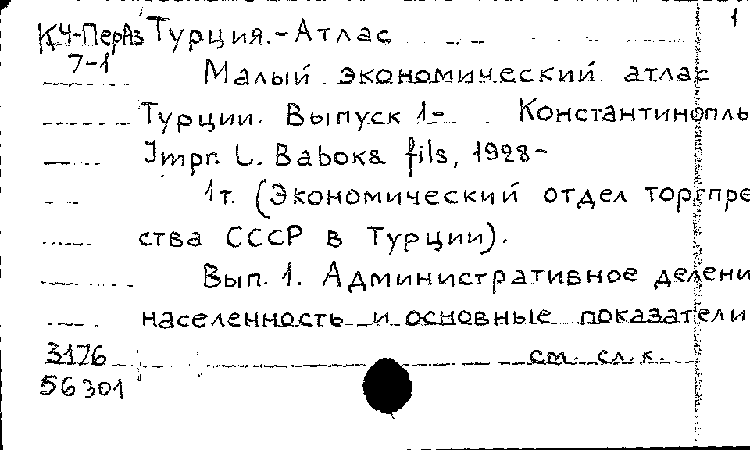 1
КЧ-ПерАз Турция.-Атлас
7-1 Малый экономический атлас
Турции. Выпуск 1- Константинопль
Impr. L. Baboka fils, 1928-
1т. (Экономический отдел торгпре
ства СССР в Турции).
Вып. 1. Административное делени
населенность и основные показатели
3176 см. сл.к.
56301